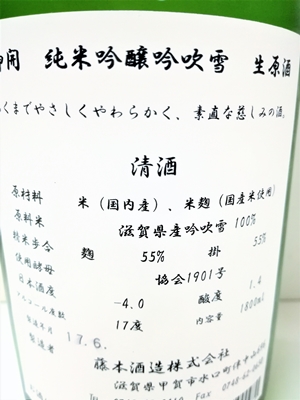 開 純米吟醸吟吹雪 生原酒
くまでやさしくやわらかく、素直な慈しみの酒。
清酒
原材料 米(国内産)、米麹(国産米使用)
原料米 滋賀県産吟吹雪 100%
精米歩合 麹 55% 掛 55%
使用酵母 協会1901号
日本酒度 -4.0 酸度 1.4
アルコール度数 17度 内容量 1800ml
製造年月 17.6.
製造者 藤本酒造株式会社
滋賀県甲賀市水口町伴中山